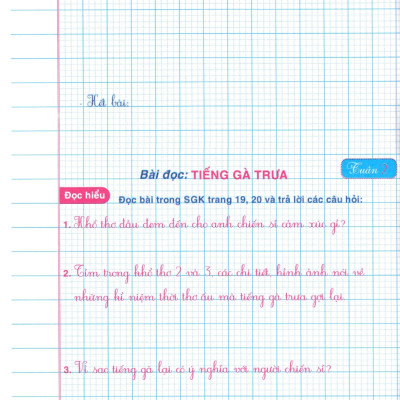 . Hết bài.
Tuần 2
Bài đọc: TIẾNG GÀ TRƯA
Đọc hiểu
Đọc bài trong SGK trang 19, 20 và trả lời các câu hỏi:
1. Khổ thơ đầu đem đến cho anh chiến sĩ cảm xúc gì?
2. Tìm trong khổ thơ 2 và 3, các chi tiết, hình ảnh nói về
những kỉ niệm thời thơ ấu mà tiếng gà trưa gợi lại.
3. Vì sao tiếng gà lại có ý nghĩa với người chiến sĩ?